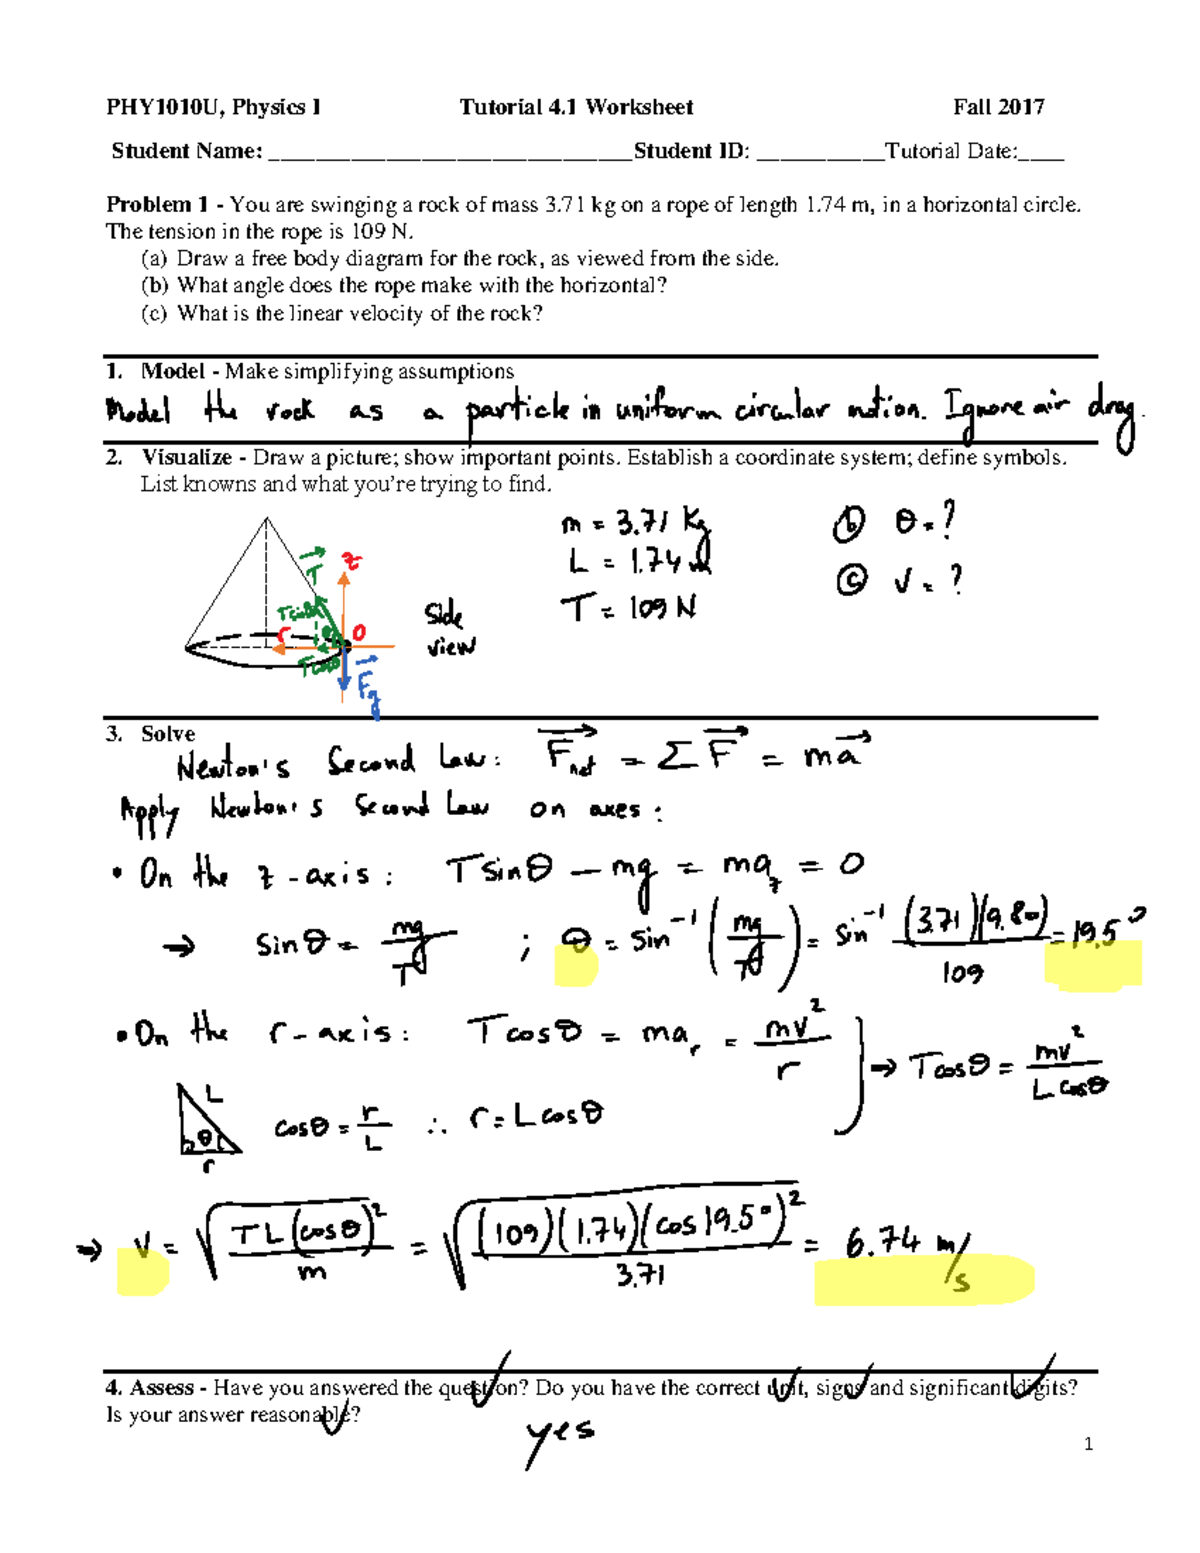 PHY1010U, Physics I Tutorial 4.1 Worksheet Fall 2017
Student Name: _______________________________Student ID: ___________Tutorial Date:____
Problem 1 - You are swinging a rock of mass 3.71 kg on a rope of length 1.74 m, in a horizontal circle.
The tension in the rope is 109 N.
(a) Draw a free body diagram for the rock, as viewed from the side.
(b) What angle does the rope make with the horizontal?
(c) What is the linear velocity of the rock?
1. Model - Make simplifying assumptions
Model the rock as a particle in uniform circular motion. Ignore air drag.
2. Visualize - Draw a picture; show important points. Establish a coordinate system; define symbols.
List knowns and what you're trying to find.
T⃗ z
T sinθ
r θ O
T cosθ
F⃗g
Side
view
m = 3.71 Kg
L = 1.74 m
T = 109 N
ⓑ θ = ?
ⓒ v = ?
3. Solve
Newton's Second Law: F⃗net = Σ F⃗ = ma⃗
Apply Newton's Second Law on axes:
• On the z-axis: T sinθ − mg = maz = 0
→ sinθ = mg/T ; θ = sin⁻¹(mg/T) = sin⁻¹ (3.71)(9.80)/109 = 19.5°
• On the r-axis: T cosθ = mar = mv²/r } → T cosθ = mv²/L cosθ
L θ r
cosθ = r/L ∴ r = L cosθ
→ v = √(TL(cosθ)²/m) = √((109)(1.74)(cos19.5°)²/3.71) = 6.74 m/s
4. Assess - Have you answered the question? Do you have the correct unit, signs and significant digits?
Is your answer reasonable?
yes
1